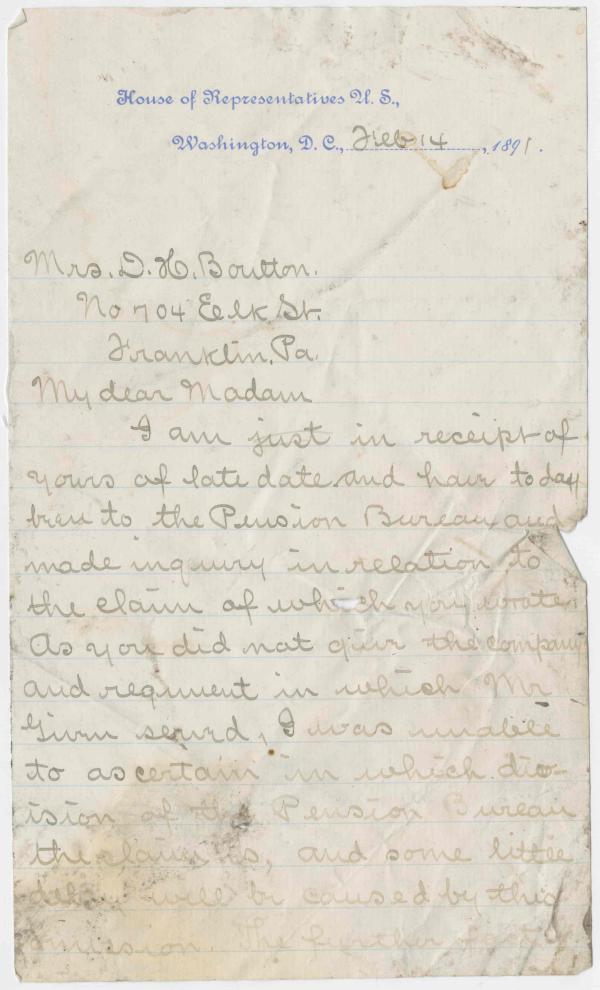 House of Representatives U. S.,
Washington, D. C., Feb 14, 1891.
Mrs. D. H. Boutton.
No 704 Eelk St.
Franklin, Pa.
My dear Madam
I am just in receipt of
yours of late date and have today
been to the Pension Bureau and
made inquiry in relation to
the claim of which you wrote.
As you did not give the company
and regiment in which Mr
Given served, I was unable
to ascertain in which div-
ision of the Pension Bureau
the claim is, and some little
delay will be caused by this
omission. The further